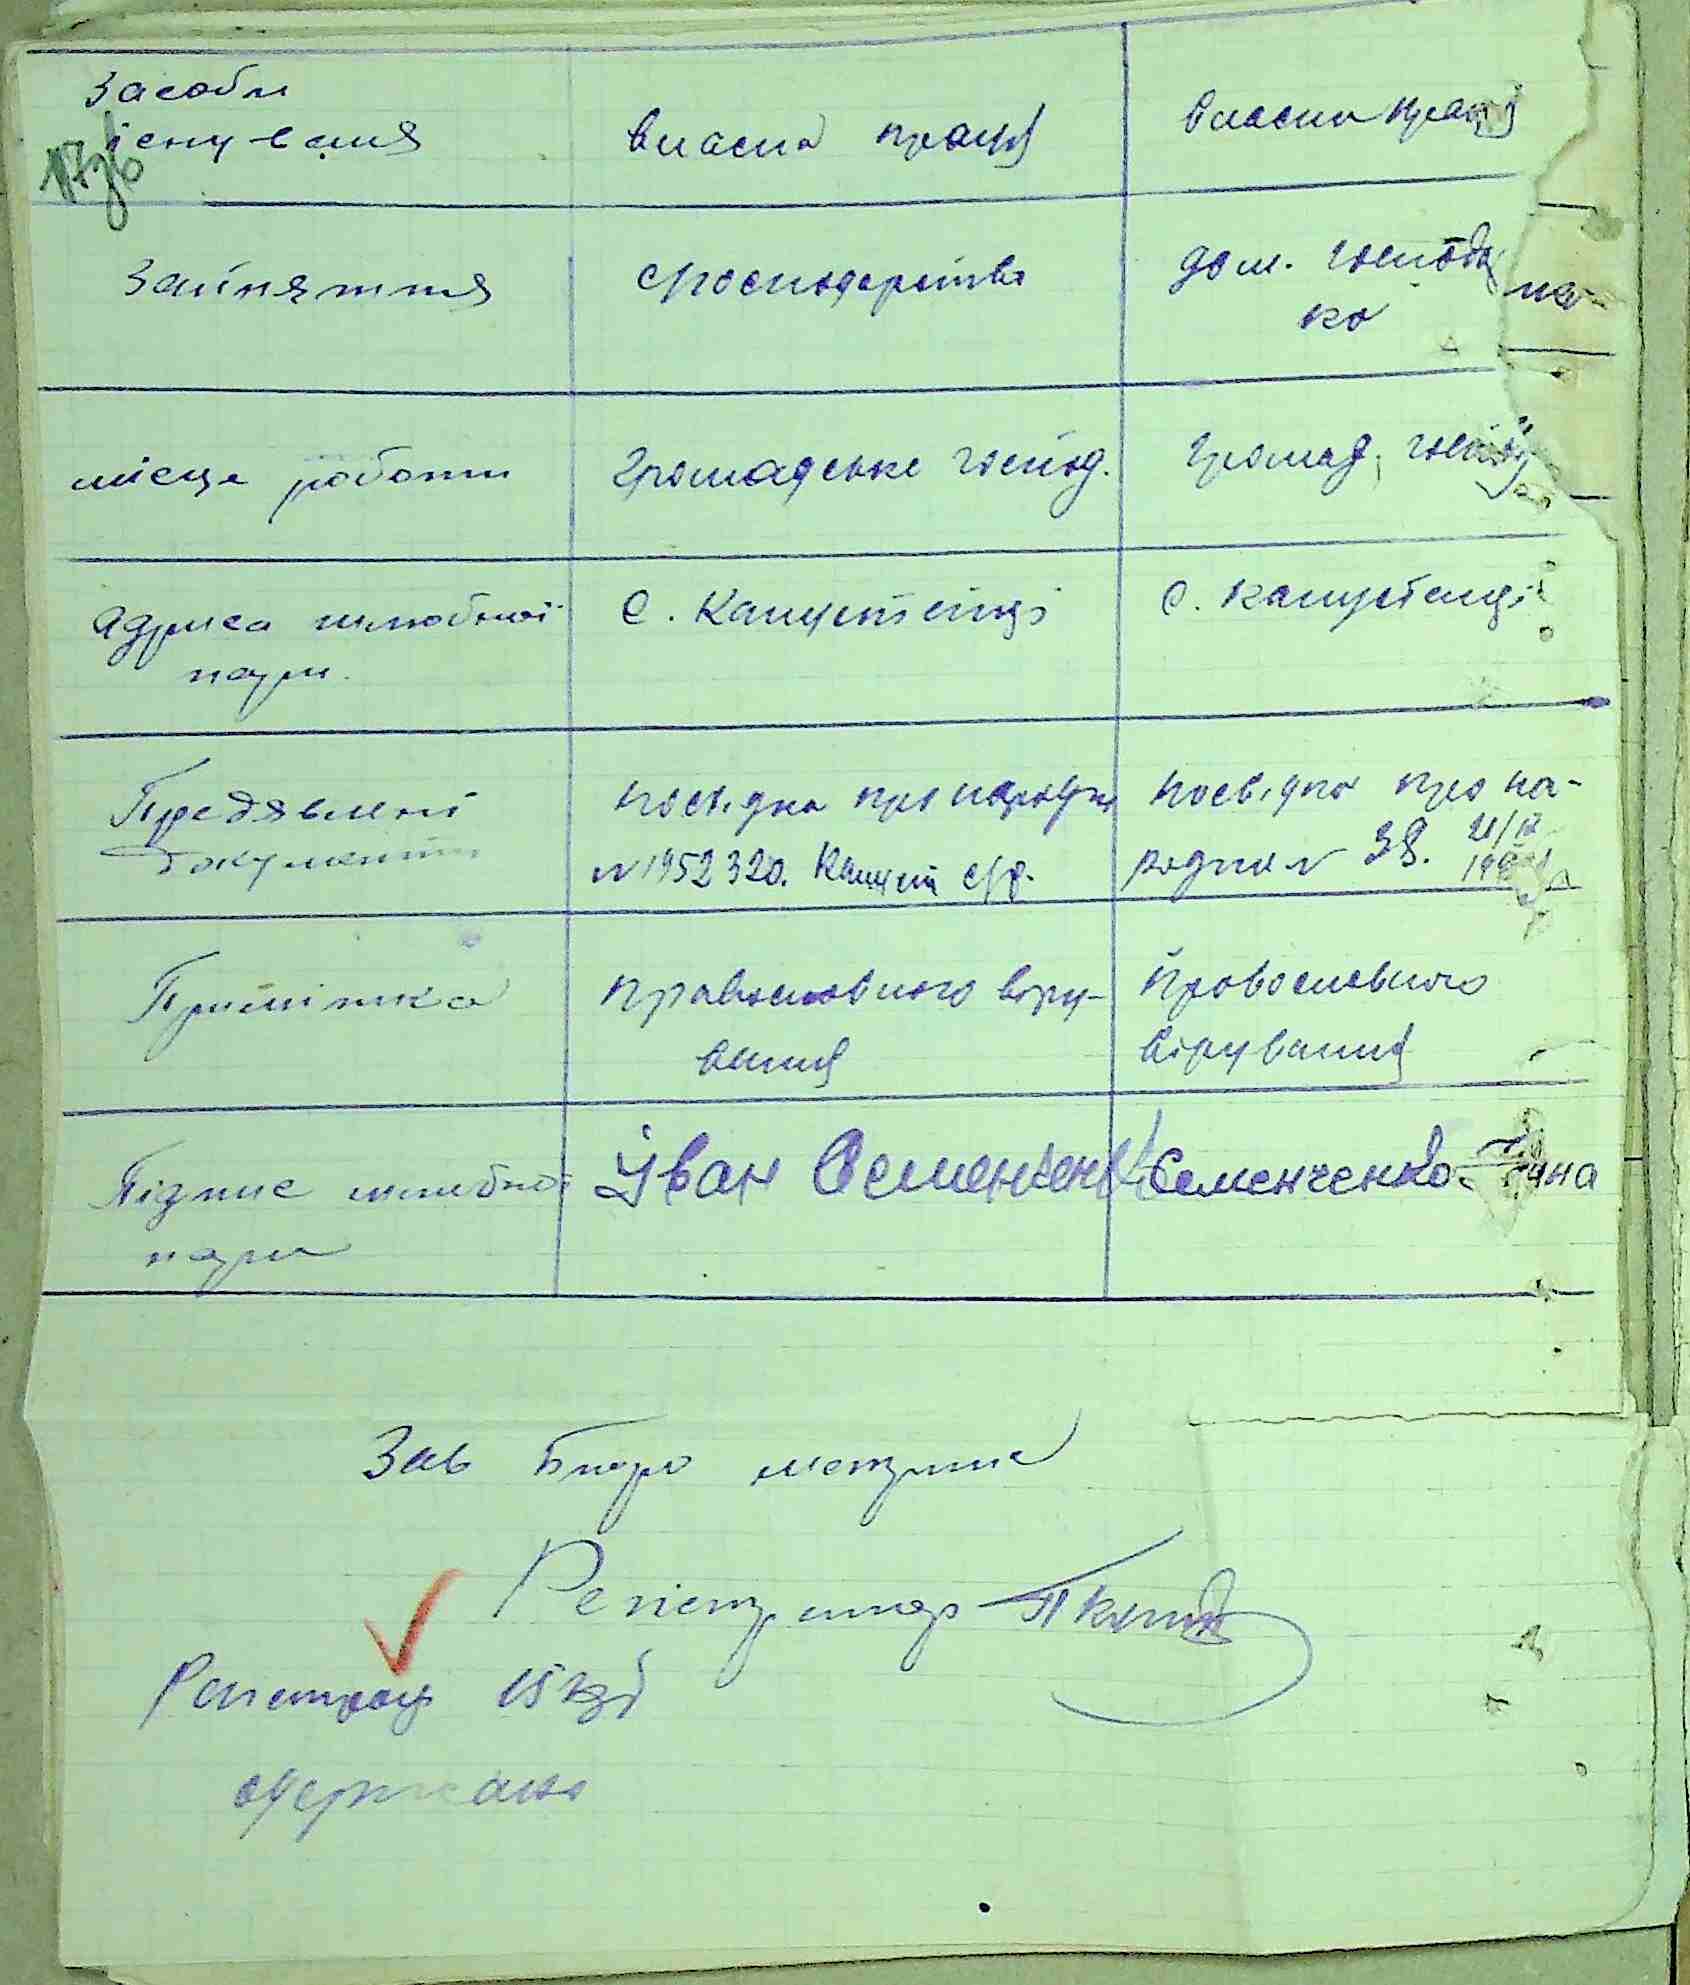 Засоби
існування
власна праця
власна праця
17зв
Зайняття
господарства
дом. господа
ко
місце роботи
Громадське господ.
Громад. господ
Адреса шлюбної
пари.
с. Капустенці
с. Капустенці
Предявлені
документи
посвідка про народжен
№ 1952320.
посвідка про на-
роджен № 38. 21/IV
Примітка
православного віру-
вання
православного
вірування
Підпис шлюбної
пари
Іван Семенченко
Семенченко
Зав Бюро метрик
Регістратор
Регістрац 15 крб
одержано